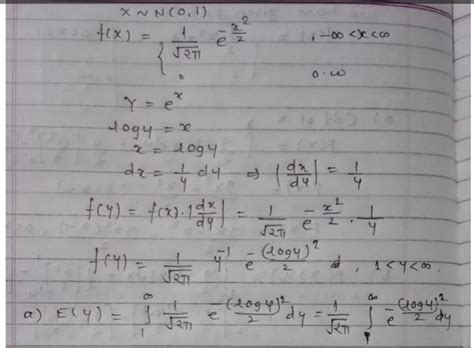 x ~ N(0,1)
f(x) = { 1/√2π e^(-x²/2) , -∞<x<∞
0 0.ω
Y = e^x
log y = x
x = log y
dx = 1/y dy ⇒ |dx/dy| = 1/y
f(y) = f(x)·|dx/dy| = 1/√2π e^(-x²/2) · 1/y
f(y) = 1/√2π y^-1 e^(-(log y)²/2) , 1<y<∞.
a) E(y) = ∫_1^∞ 1/√2π e^(-(log y)²/2) dy = 1/√2π ∫_1^∞ e^(-(log y)²/2) dy